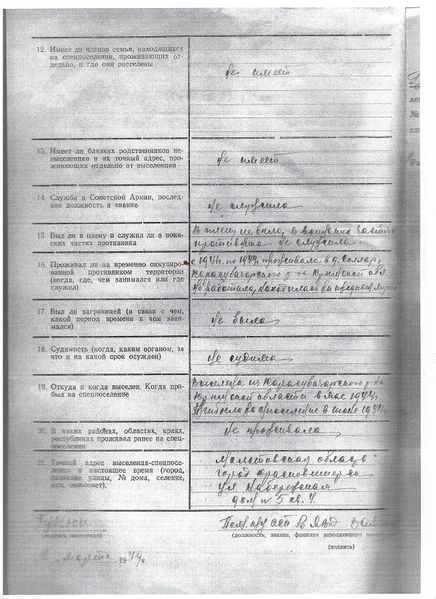 12. Имеет ли членов семьи, находящихся
на спецпоселении, проживающих от-
дельно, и где они расселены
Не имеет
13. Имеет ли близких родственников не-
выселенцев и их точный адрес, про-
живающих отдельно от выселенцев
Не имеет
14. Служба в Советской Армии, послед-
няя должность и звание
Не служила
15. Был ли в плену и служил ли в воин-
ских частях противника
В плену не была, в воинских частях
противника не служила
16. Проживал ли на временно оккупиро-
ванной противником территории
(когда, где, чем занимался или где
служил)
по 1944, проживала в д.
Карасубазарского р-на Крымской обл.
Не работала, находилась на
17. Был ли заграницей (в связи с чем,
какой период времени и чем зани-
мался)
Не была
18. Судимость (когда, каким органом, за
что и на какой срок осужден)
Не судима
19. Откуда и когда выселен. Когда при-
был на спецпоселение
Выселена из Карасубазарского р-на
Крымской области в мае 1944
Прибыла на спецпоселение в июне 1944
20. В каких районах, областях, краях,
республиках проживал ранее на спец-
поселении
Не проживала
21. Точный адрес выселенца-спецпосе-
ленца в настоящее время (город,
название улицы, № дома, селение,
сельсовет)
Молотовская область
город Краснокамск
ул. Набережная
дом № 5 кв.
марта 1949
(должность, звание, фамилия заполнявшего
(подпись)